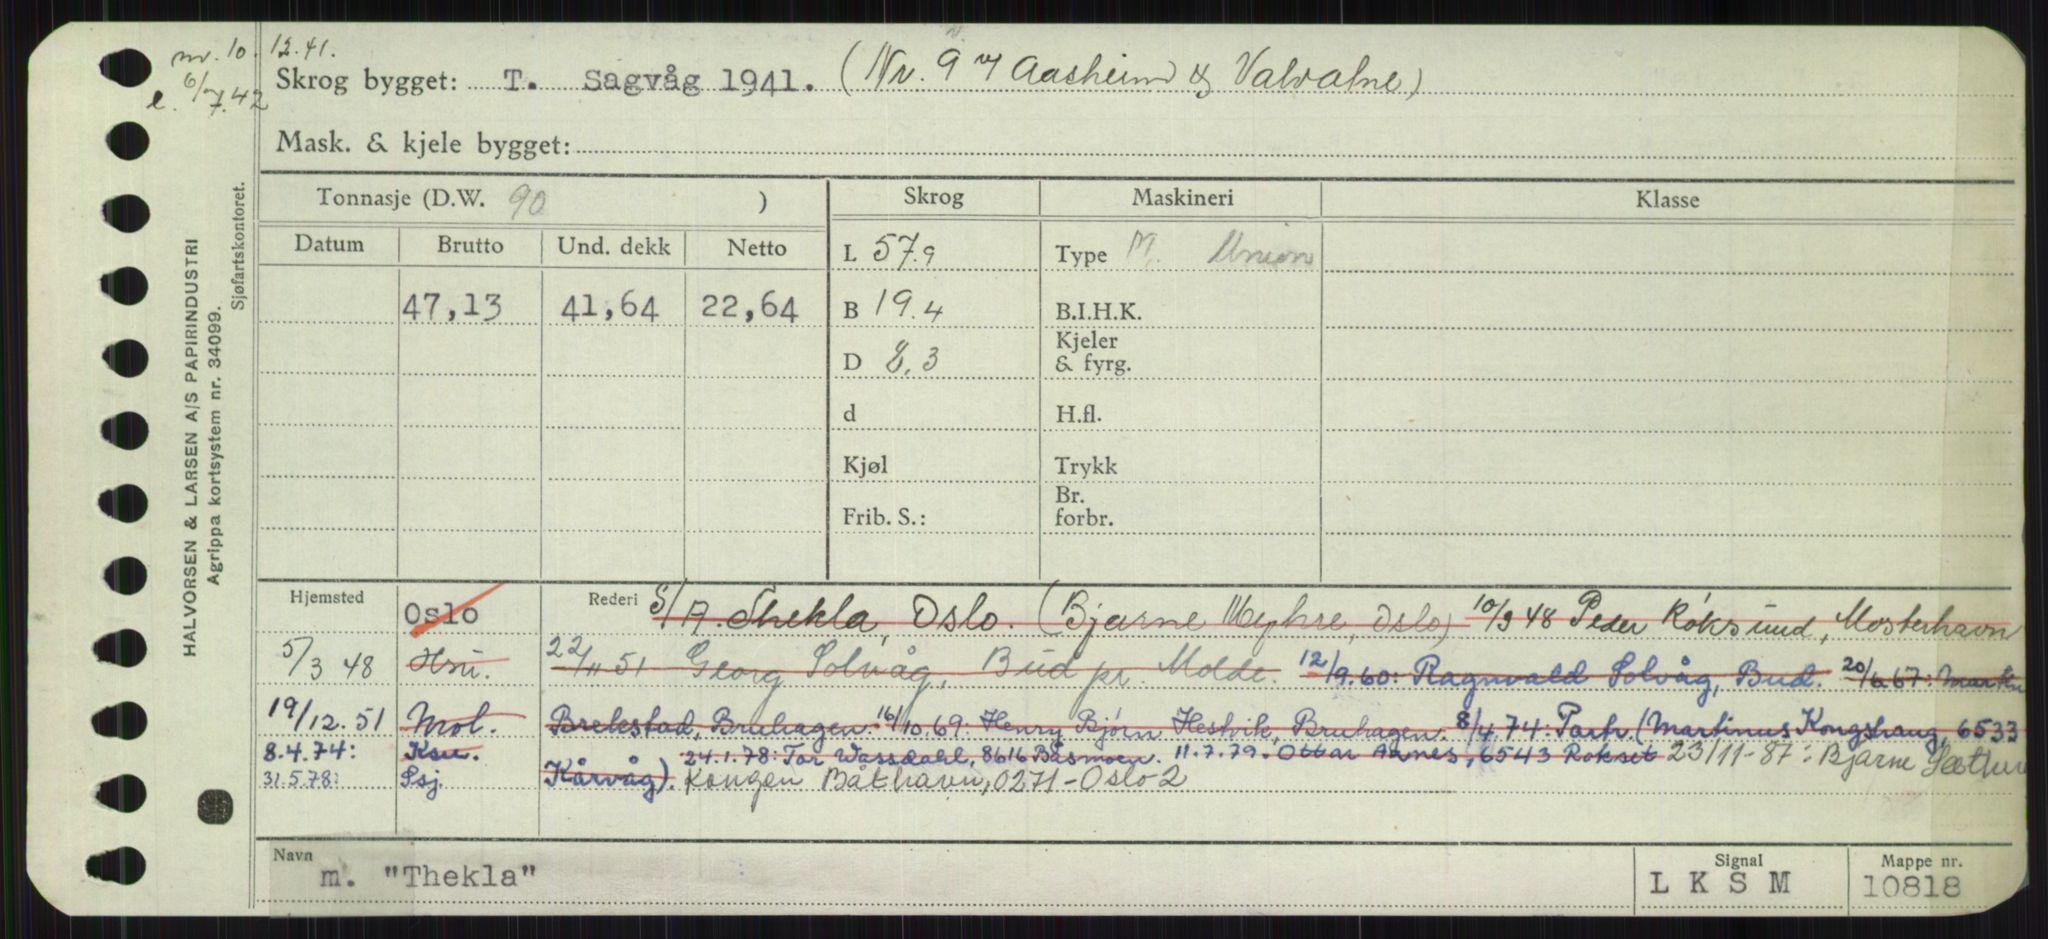 nr. 10. 12.41.
e. 6/7.42
Skrog bygget: T. Sagvåg 1941. (Nr. 9 v/ Aasheim & Valvatne)
Mask. & kjele bygget:
HALVORSEN & LARSEN A/S PAPIRINDUSTRI
Agrippa kortsystem nr. 34099.
Sjøfartskontoret.
Tonnasje (D.W. 90 ) Skrog Maskineri Klasse
Datum Brutto Und. dekk Netto
L 57.9 Type M. Union
47,13 41,64 22,64 B 19.4 B.I.H.K.
D 8,3 Kjeler & fyrg.
d H.fl.
Kjøl Trykk
Frib. S.: Br. forbr.
Hjemsted Oslo Rederi S/A. Thekla, Oslo. (Bjarne Myhre, Oslo) 10/3 48 Peder Røksund, Mosterhavn
5/3 48 Hsu. 22/11 51 Georg Solvåg, Bud pr. Molde. 12/9.60: Ragnvald Solvåg, Bud. 20/6.67: Martin
19/12.51 Mol. Brekstad, Bruhagen. 16/10.69: Henry Bjørn Hestvik, Bruhagen. 8/4.74: Partr. (Martinus Kongshaug, 6533
8.4.74: Ksu. Kårvåg). 24.1.78: Tor Wassdahl, 8616 Båsmoen. 11.7.79. Ottar Aanes, 6543 Roksei 23/11-87: Bjarne
31.5.78: Ssj. Kongen Båthavn, 0271-Oslo 2
Navn m. "Thekla" Signal LKSM Mappe nr. 10818